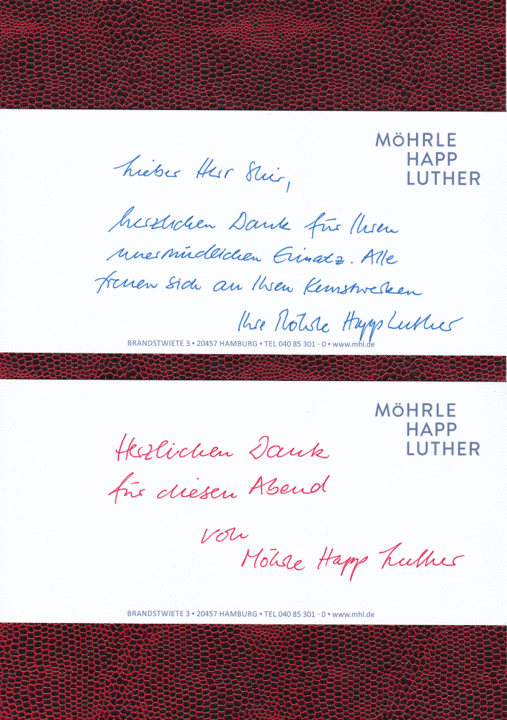 MÖHRLE
HAPP
LUTHER
Lieber Herr
herzlichen Dank für Ihren
unermüdlichen Einsatz. Alle
freuen sich an Ihren Kunstwerken
Ihre Möhrle Happ Luther
BRANDSTWIETE 3 • 20457 HAMBURG • TEL 040 85 301 - 0 • www.mhl.de
MÖHRLE
HAPP
LUTHER
Herzlichen Dank
für diesen Abend
von
Möhrle Happ Luther
BRANDSTWIETE 3 • 20457 HAMBURG • TEL 040 85 301 - 0 • www.mhl.de